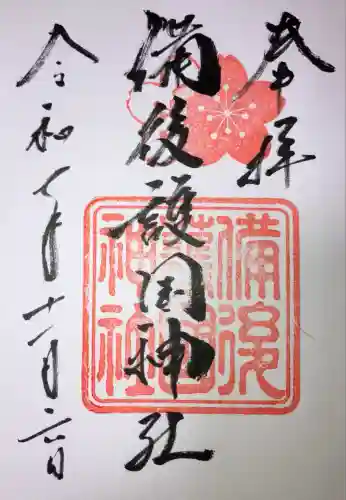 奉拝
備後護國神社
令和七年十一月六日
備後
護國
神社